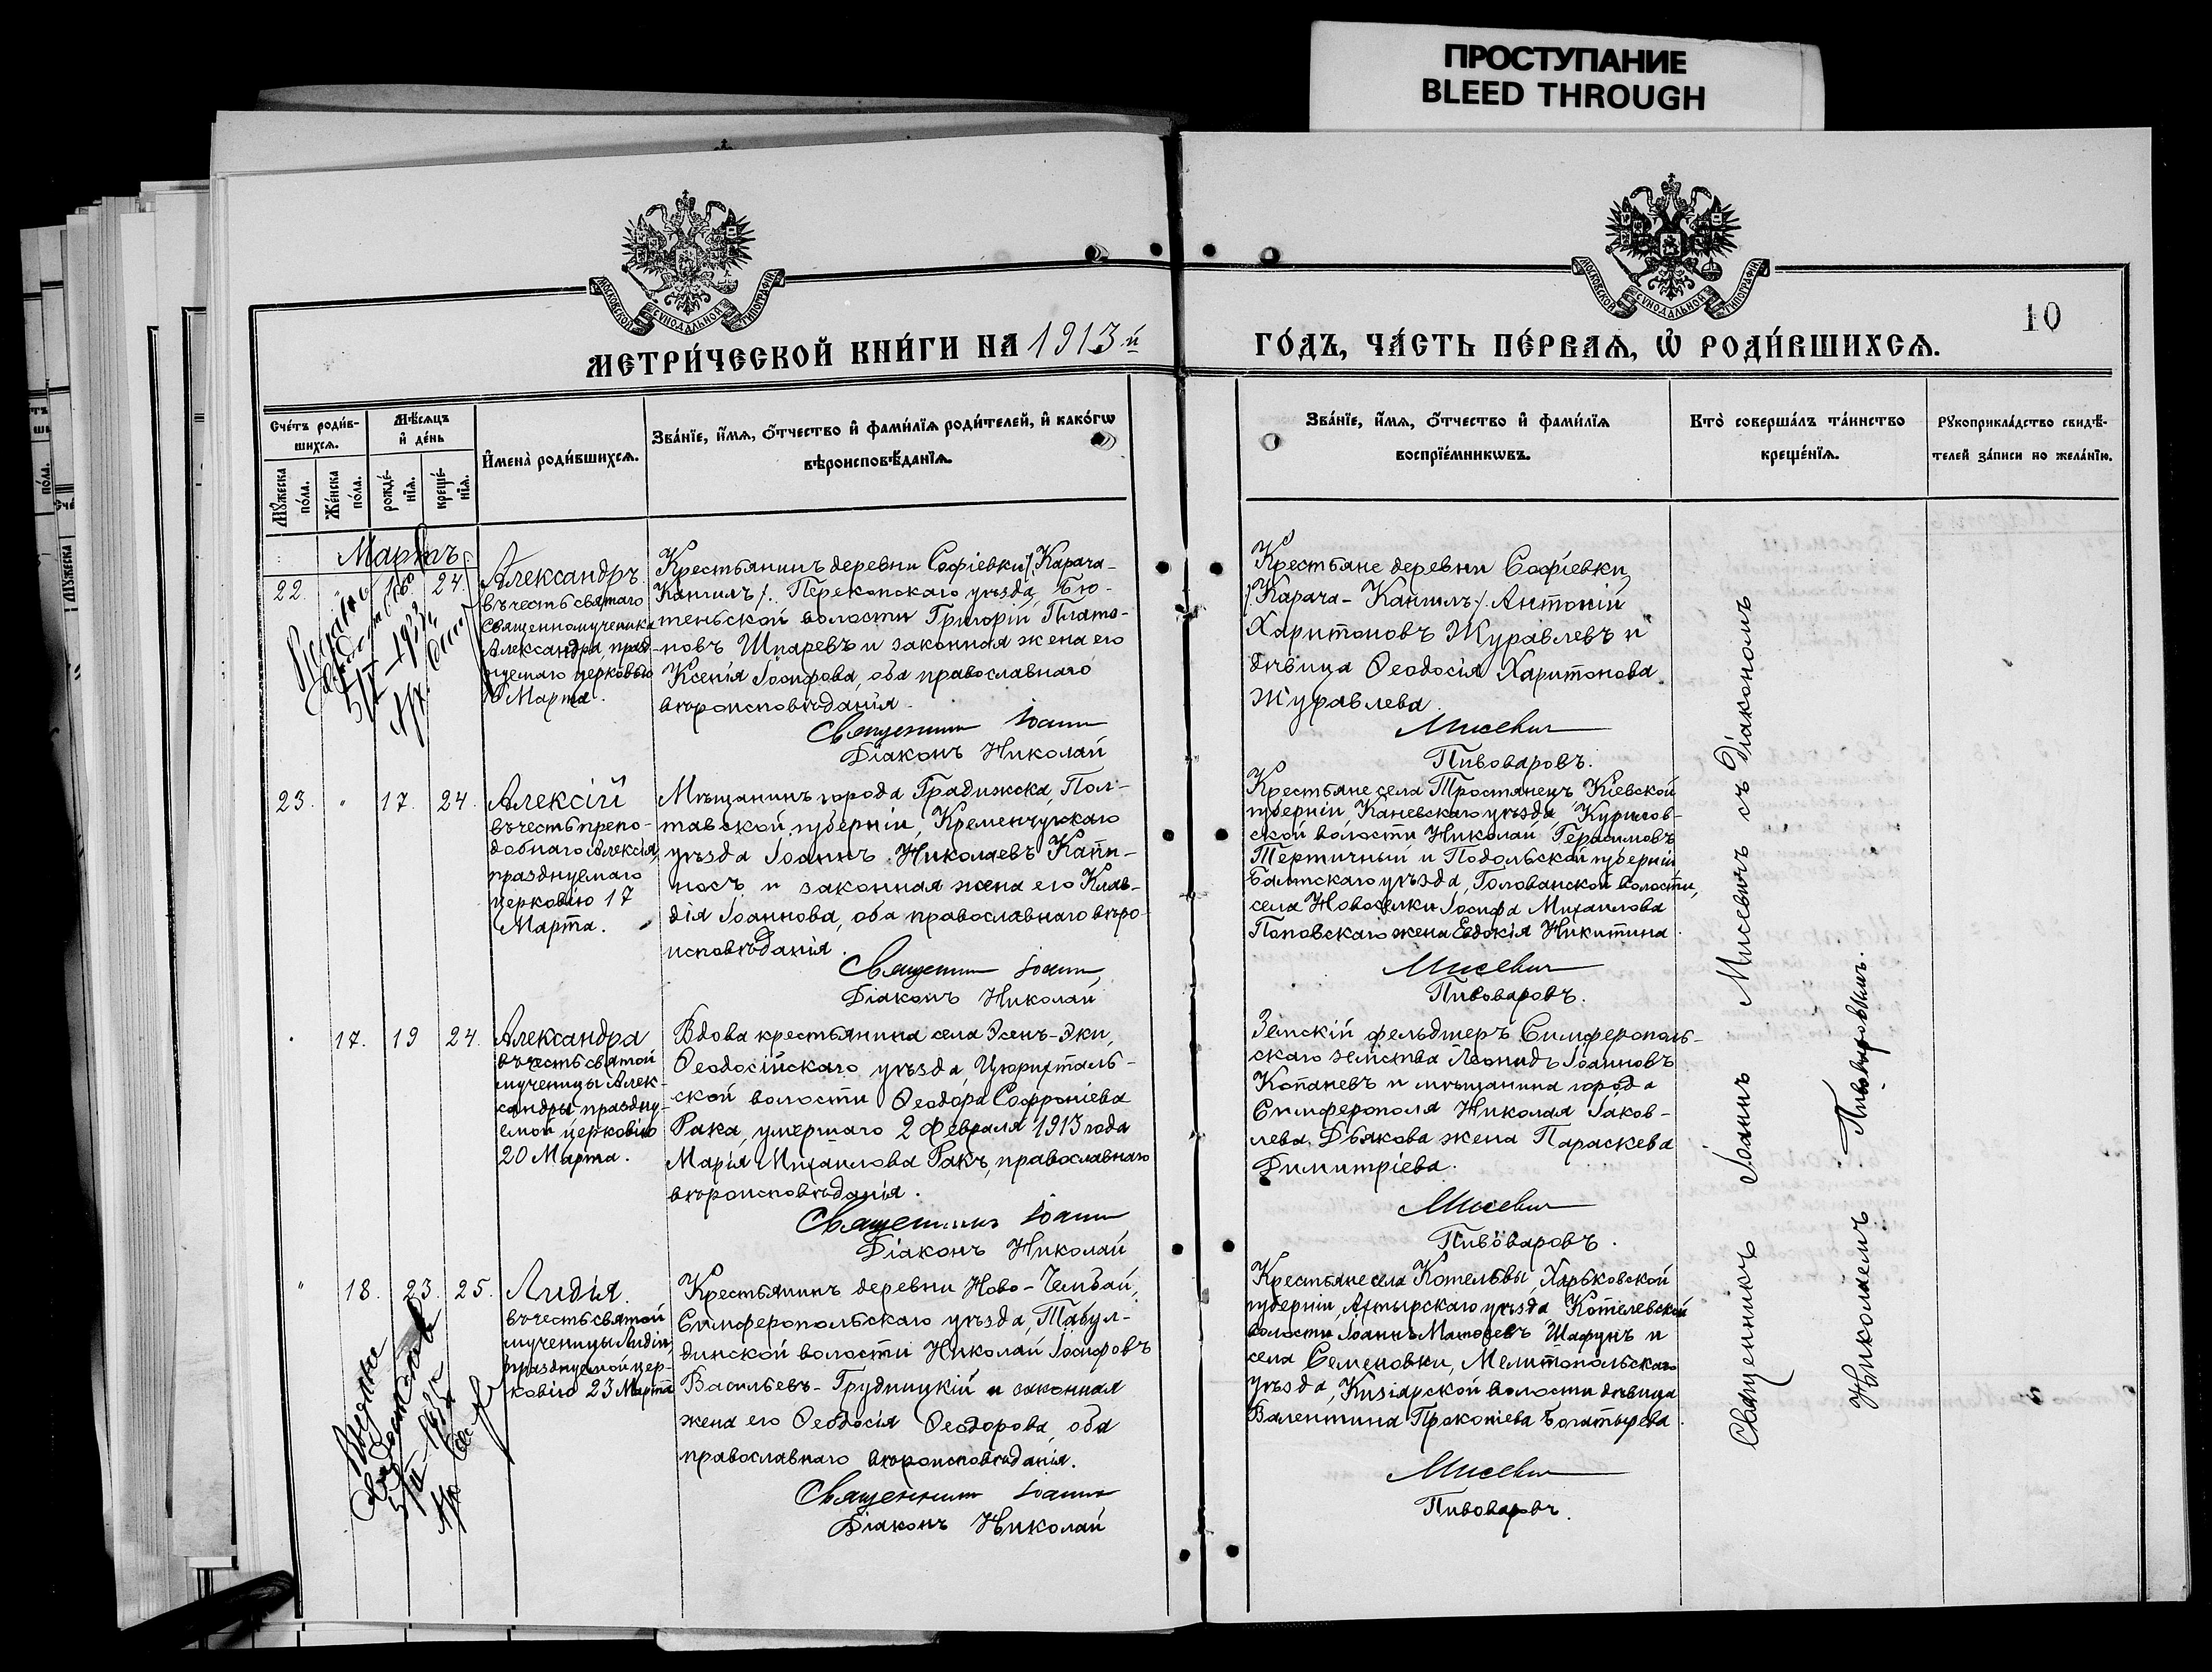 ПРОСТУПАНИЕ
BLEED THROUGH
МОСКОВСКОЙ СѴНОДАЛЬНОЙ ТИПОГРАФІИ
МОСКОВСКОЙ СѴНОДАЛЬНОЙ ТИПОГРАФІИ
10
МЕТРИ́ЧЕСКОЙ КНИ́ГИ НА 1913 й
ГО́ДЪ, ЧА́СТЬ ПЕ́РВАѦ, Ѡ҆ РОДИ́ВШИХСѦ.
Сче́тъ роди́в-
шихсѧ.
Мѣ́сѧцъ
и҆ де́нь
Мꙋ́жеска
по́ла.
Же́нска
по́ла.
рожде́-
нїѧ.
креще́-
нїѧ.
И҆мена̀ роди́вшихсѧ.
Зва́нїе, и҆́мѧ, ѻ҆́тчество и҆ фами́лїѧ роди́телей, и҆ како́гѡ
вѣроисповѣ́данїѧ.
Зва́нїе, и҆́мѧ, ѻ҆́тчество и҆ фами́лїѧ
воспрїе́мникѡвъ.
Кто̀ соверша́лъ та́инство
креще́нїѧ.
Рꙋкоприкла́дство свидѣ́-
телей за́писи по жела́нїю.
Мартъ
22. " 18. 24.
Александръ
въ честь святаго
священномученика
Александра, празд-
нуемаго церковью
Марта.
Крестьянинъ деревни Софіевки /Карача-
Кангилъ/. Перекопскаго уѣзда, Бю-
теньской волости Григорій Плато-
новъ Шпаревъ и законная жена его
Ксенія Іосифова, оба православнаго
вѣроисповѣданія.
Священник Іоанн
Діаконъ Николай
Крестьяне деревни Софіевки,
/Карача-Кангилъ/. Антоній
Харитоновъ Журавлевъ и
дѣвица Ѳеодосія Харитонова
Журавлева.
Мисевич
Пивоваровъ.
23. " 17. 24.
Алексій
въ честь препо-
добнаго Алексія,
празднуемаго
церковію 17
Марта.
Мѣщанинъ города Градижска, Пол-
тавской губерніи, Кременчугскаго
уѣзда Іоаннъ Николаевъ Капи-
носъ и законная жена его Клав-
дія Іоаннова, оба православнаго вѣро-
исповѣданія.
Священник Іоанн
Діаконъ Николай
Крестьяне села Тростянецъ Кіевской
губерніи, Каневскаго уѣзда, Курилов-
ской волости Николай Герасимовъ
Тертичный и Подольской губерніи
Балтскаго уѣзда, Голованской волости,
села Новоселки Іосифа Михаилова
Поповскаго жена Евдокія Никитина.
Мисевич
Пивоваровъ.
" 17. 19 24.
Александра
въ честь святой
мученицы Алек-
сандры праздну-
емой церковію
20 Марта.
Вдова крестьянина села Эсенъ-Эки,
Ѳеодосійскаго уѣзда, Цюрихталь-
ской волости Ѳеодора Софроніева
Рака, умершаго 2 февраля 1913 года
Марія Михаилова Ракъ, православнаго
вѣроисповѣданія.
Священникъ Іоанн
Діаконъ Николай
Земскій фельдшеръ Симферополь-
скаго земства Леонидъ Іоанновъ
Копаневъ и мѣщанина города
Симферополя Николая Іаков-
лева Дьякова жена Параскева
Димитріева.
Мисевич
Пивоваровъ.
" 18. 23. 25.
Лидія
въ честь святой
мученицы Лидіи
празднуемой цер-
ковію 23 Марта
Крестьянинъ деревни Ново-Чембай,
Симферопольскаго уѣзда, Табул-
динской волости Николай Іосифовъ
Васильевъ-Грудницкій и законная
жена его Ѳеодосія Ѳеодорова, оба
православнаго вѣроисповѣданія.
Священник Іоанн
Діаконъ Николай
Крестьяне села Котельвы, Харьковской
губерніи, Ахтырскаго уѣзда, Котелевской
волости Іоаннъ Матѳеевъ Шафунъ и
села Семеновки, Мелитопольскаго
уѣзда, Кизіарской волости дѣвица
Валентина Прокопіева Богатырева.
Мисевич
Пивоваровъ.
Священникъ Іоаннъ Мисевичъ съ діакономъ
Николаемъ Пивоваровымъ.